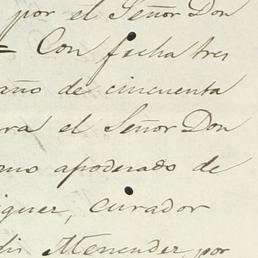 por el Señor Don
= Con fecha tres
año de cincuenta
ra el Señor Don
omo apoderado de
iguer, curador
Menendez, por